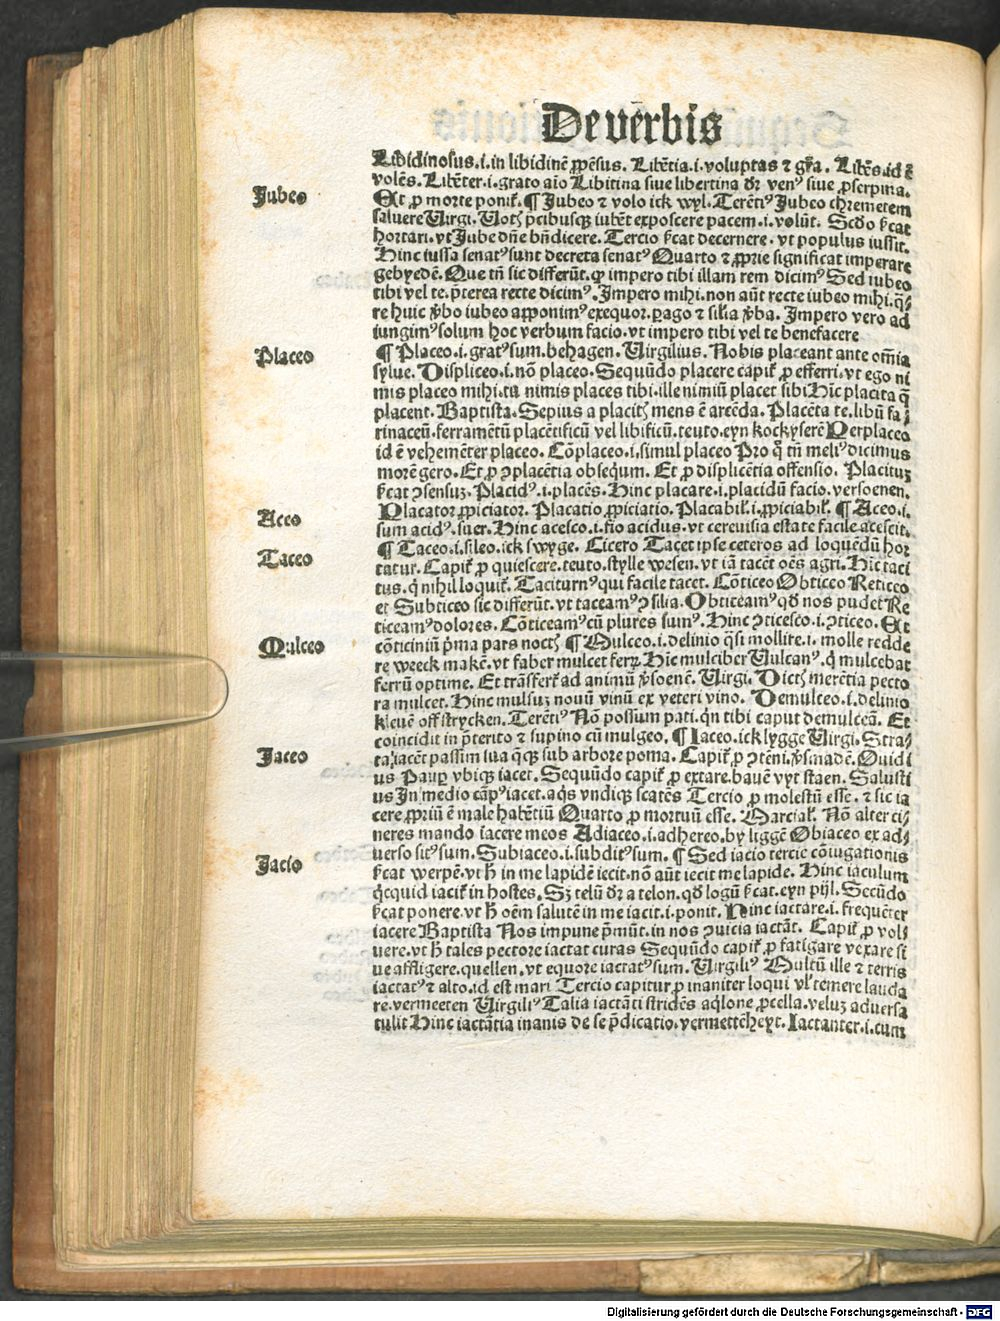 De verbis
Libidinosus.i.in libidinē ꝓpēsus. Libētia.i.voluptas ⁊ gr̄a. Libēs.id ē
volēs. Libēter.i.grato aīo Libitina siue libertina dr̄ venꝰ siue ꝓserpina.
Jubeo
Et ꝓ morte poniť. ¶ Jubeo ⁊ volo ick wyl. Terētiꝰ Jubeo chremetem
saluere Virgi. Votꝭ p̄cibusqꝫ iubēt exposcere pacem.i.volūt. Scd̄o ſ̄cat
hortari.vt Jube dn̄e bn̄dicere. Tercio ſ̄cat decernere. vt populus iussit.
Hinc iussa senatꝰ sunt decreta senatꝰ Quarto ⁊ ꝓprie significat imperare
gebyedē. Que tn̄ sic differūt. qꝫ impero tibi illam rem dicimꝰ Sed iubeo
tibi vel te. p̄terea recte dicimꝰ. Impero mihi. non aūt recte iubeo mihi. q̄-
re huic ꝟbo iubeo apponimꝰ exequor. ꝑago ⁊ silia ꝟba. Impero vero ad
iungimꝰ solum hoc verbum facio. vt impero tibi vel te benefacere
Placeo
¶ Placeo.i.gratꝰ sum. behagen. Virgilius. Nobis placeant ante om̄ia
sylue. Displiceo.i.nō placeo. Sequūdo placere capiť ꝓ efferri. vt ego ni
mis placeo mihi. tu nimis places tibi. ille nimiū placet sibi Hīc placita q̄
placent. Baptista. Sepius a placitꝭ mens ē arcēda. Placēta te. libū fa-
rinaceū. ferramētū placētificū vel libificū. teuto. eyn kockyserē Perplaceo
id ē vehemēter placeo. Cōplaceo.i.simul placeo Pro q̄ tn̄ meliꝰ dicimus
morē gero. Et ꝓ ꝯplacētia obsequm. Et ꝓ displicētia offensio. Placituꝫ
ſ̄cat ꝯsensuꝫ. Placidꝰ.i.placēs. Hinc placare.i.placidū facio. versoenen.
Aceo
Placator ꝓpiciator. Placatio ꝓpiciatio. Placabil̓.i.ꝓpiciabil̓. ¶ Aceo.i.
sum acidꝰ. suer. Hinc acesco.i.fio acidus. vt ceruisia estate facile acescit.
Taceo
¶ Taceo.i.sileo. ick swyge. Cicero Tacet ipse ceteros ad loquēdū hor
tatur. Capiť ꝓ quiescere. teuto. stylle wesen. vt iā tacēt oēs agri. Hīc taci
tus. q̄ nihil loquiť. Taciturnꝰ qui facile tacet. Cōticeo Obticeo Reticeo
et Subticeo sic differūt. vt taceamꝰ ꝯsilia. Obticeamꝰ qd̄ nos pudet Re
ticeamꝰ dolores. Cōticeamꝰ cū plures sumꝰ. Hinc ꝯticesco.i.ꝯticeo. Et
Mulceo
cōticiniū p̄ma pars noctꝭ ¶ Mulceo.i.delinio q̄si mollire.i.molle redde
re weeck makē. vt faber mulcet ferꝝ. Hīc mulciber Vulcanꝰ. q̄ mulcebat
ferrū optime. Et trāsferť ad animū ꝟsoenē. Virgi. Dictꝭ merētia pecto
ra mulcet. Hinc mulsuꝫ nouū vinū ex veteri vino. Demulceo.i.delinio
kleuē off strycken. Terētiꝰ Nō possum pati. qn̄ tibi caput demulceā. Et
coincidit in p̄terito ⁊ supino cū mulgeo. ¶ Iaceo. ick lygge Virgi. Stra-
Jaceo
ta iacēt passim sua q̄qꝫ sub arbore poma. Capiť ꝓ ꝯtēni. ꝟsmadē. Ouidi
us Pauꝑ vbiqꝫ iacet. Sequūdo capiť ꝓ extare. bauē vyt staen. Salusti
us In medio cāpꝰ iacet. aq̄s vndiqꝫ scatēs Tercio ꝓ molestū esse. ⁊ sic ia
cere ꝓpriū ē male habētiū Quarto ꝓ mortuū esse. Marcial̓. Nō alter ci-
neres mando iacere meos Adiaceo.i.adhereo. by liggē Obiaceo ex ad-
verso sitꝰ sum. Subiaceo.i.subditꝰ sum. ¶ Sed iacio tercie cōiugationis
Jacio
ſ̄cat werpē. vt h̄ in me lapidē iecit. nō aūt iecit me lapide. Hinc iaculum
q̄cquid iaciť in hostes. Sꝫ telū dr̄ a telon. qd̄ logū ſ̄cat. eyn pijl. Secūdo
ſ̄cat ponere. vt h̄ oēm salutē in me iacit.i.ponit. Hinc iactare.i.frequēter
iacere Baptista Nos impune p̄mūt. in nos ꝯuicia iactāt. Capiť ꝓ vol-
uere. vt h̄ tales pectore iactat curas Sequūdo capiť ꝓ fatigare vexare si
ue affligere. quellen. vt equore iactatꝰ sum. Virgiliꝰ Multū ille ⁊ terris
iactatꝰ ⁊ alto. id est mari Tercio capitur ꝓ inaniter loqui vl̓ temere lauda
re. vermeeten Virgiliꝰ Talia iactāti stridēs aq̄lone ꝓcella. veluꝫ aduersa
tulit Hinc iactātia inanis de se p̄dicatio. vermettēheyt. Iactanter.i.cum
Digitalisierung gefördert durch die Deutsche Forschungsgemeinschaft - DFG